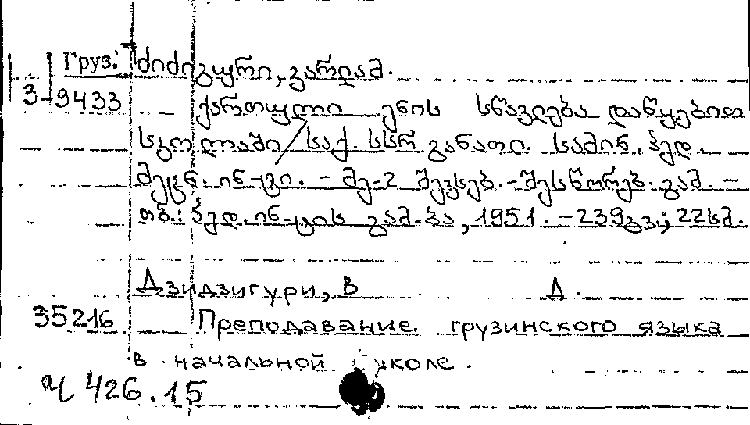 Груз. ძიძიგური, ვარლამ.
3-9433 ქართული ენის სწავლება დაწყებით
სკოლაში / საქ. სსრ განათ. სამინ. პედ.
მეცნ. ინ-ტი. - მე-2 შევსებ.-შესწორებ. გამ. -
თბ.: პედ. ინ-ტის გამ-ბა, 1951. - 239გვ.; 22სმ.
Дзидзигури, В Д.
35216 Преподавание грузинского языка
в начальной школе.
Ч 426.15